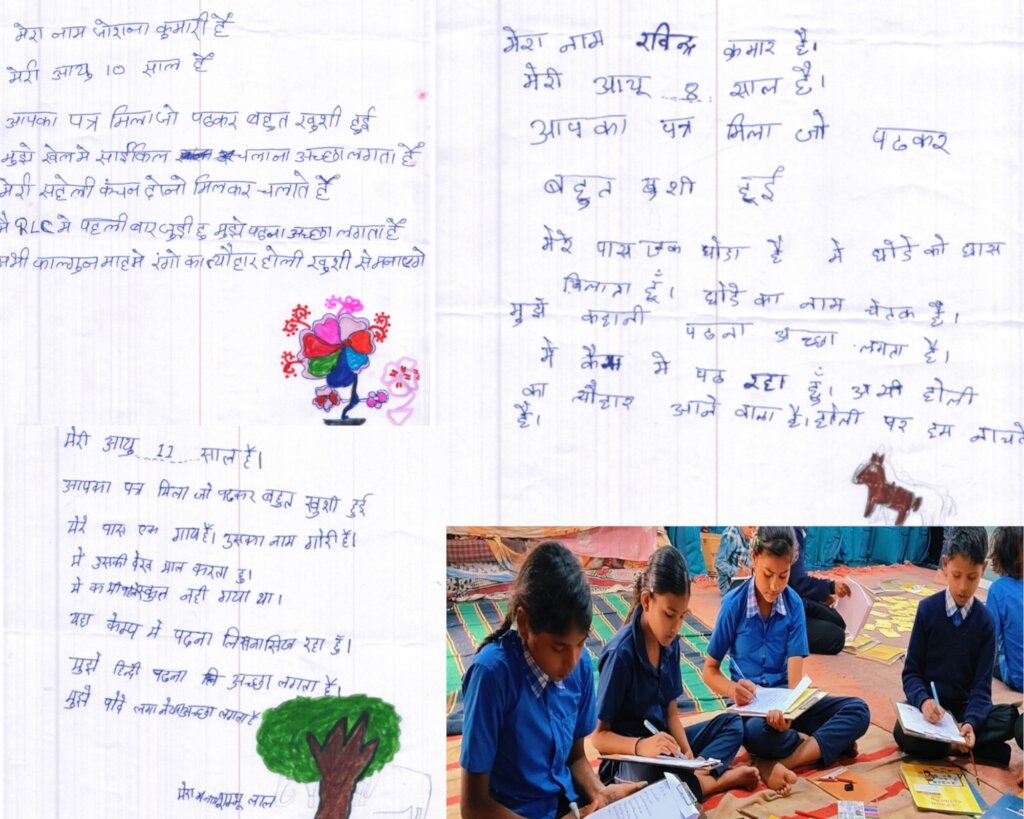 मेरा नाम जोराना कुमारी हैं
मेरी आयु 10 साल हैं
आपका पत्र मिला जो पढकर बहुत खुशी हुई
मुझे खेल मे साईकिल चलाना अच्छा लगता हैं
मेरी सहेली कंचन दोनो मिलकर चलाते हैं
मै RLC मे पहली बार जुडी हु मुझे पढना अच्छा लगता हैं
अभी फाल्गुन माह मे रंगो का त्यौहार होली खुशी से मनाएगे
मेरा नाम रविन्द्र कुमार है।
मेरी आयू 8 साल है।
आपका पत्र मिला जो पढकर
बहुत खुशी हूई
मेरे पास एक घोडा है मे घोडे को घास
खिलाता हूँ। घोडे का नाम चेतक है।
मुझे कहानी पढना अच्छा लगता है।
मे कैम्प मे पढ रहा हूँ। अभी होली
का त्यौहार आने वाला है। होली पर हम नाचते
है।
मेरी आयु 11 साल हैं।
आपका पत्र मिला जो पढकर बहुत खुशी हुई
मेरे पास एक गाय हैं। उसका नाम गोरी हैं।
मे उसकी देख भाल करता हु।
मे कभी स्कुल नही गया था।
यहा केम्प मे पढना लिखना सिख रहा हुँ।
मुझे हिन्दी पढना अच्छा लगता हैं।
मुझे पौदे लगा अच्छा लगता हैं
मेरा लाल